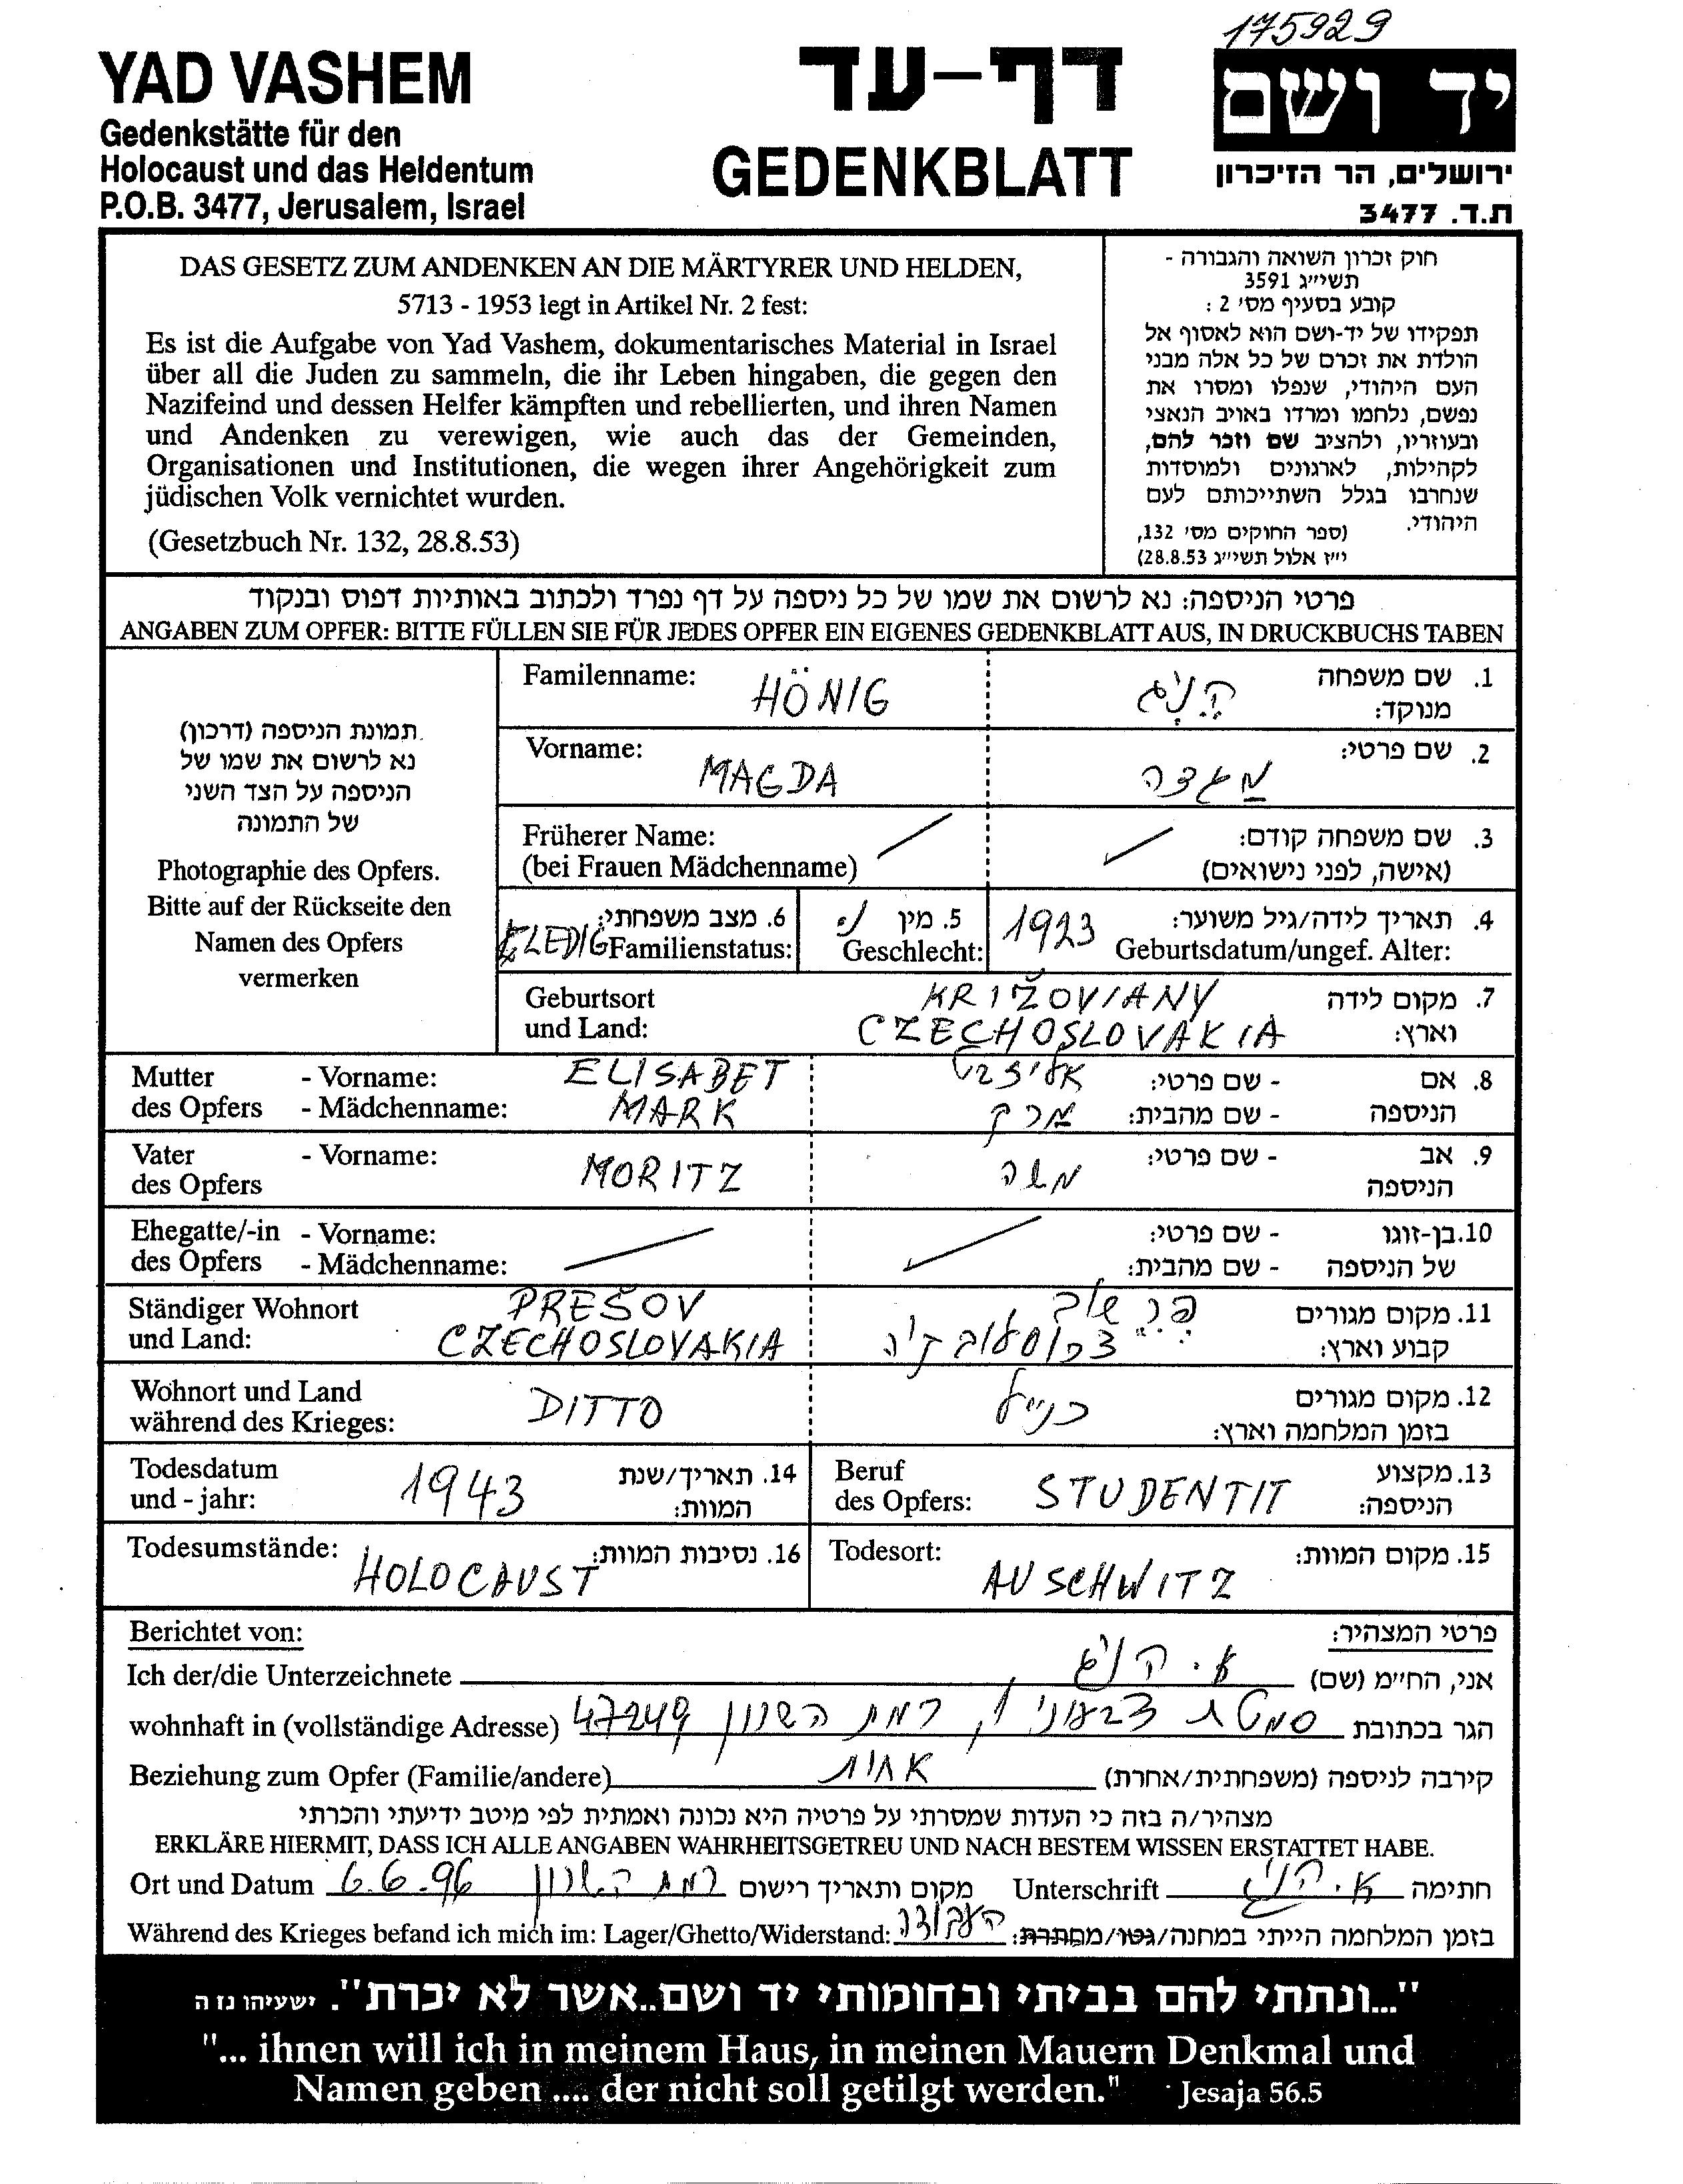 175929
YAD VASHEM
Gedenkstätte für den
Holocaust und das Heldentum
P.O.B. 3477, Jerusalem, Israel
דף-עד
GEDENKBLATT
יד ושם
ירושלים, הר הזיכרון
ת.ד. 3477
DAS GESETZ ZUM ANDENKEN AN DIE MÄRTYRER UND HELDEN,
5713 - 1953 legt in Artikel Nr. 2 fest:
Es ist die Aufgabe von Yad Vashem, dokumentarisches Material in Israel
über all die Juden zu sammeln, die ihr Leben hingaben, die gegen den
Nazifeind und dessen Helfer kämpften und rebellierten, und ihren Namen
und Andenken zu verewigen, wie auch das der Gemeinden,
Organisationen und Institutionen, die wegen ihrer Angehörigkeit zum
jüdischen Volk vernichtet wurden.
(Gesetzbuch Nr. 132, 28.8.53)
חוק זכרון השואה והגבורה -
תשי״ג 3591
קובע בסעיף מס׳ 2 :
תפקידו של יד-ושם הוא לאסוף אל
הולדת את זכרם של כל אלה מבני
העם היהודי, שנפלו ומסרו את
נפשם, נלחמו ומרדו באויב הנאצי
ובעוזריו, ולהציב שם וזכר להם,
לקהילות, לארגונים ולמוסדות
שנחרבו בגלל השתייכותם לעם
היהודי. (ספר החוקים מס׳ 132,
י״ז אלול תשי״ג 28.8.53)
פרטי הניספה: נא לרשום את שמו של כל ניספה על דף נפרד ולכתוב באותיות דפוס ובנקוד
ANGABEN ZUM OPFER: BITTE FÜLLEN SIE FÜR JEDES OPFER EIN EIGENES GEDENKBLATT AUS, IN DRUCKBUCHS TABEN
תמונת הניספה (דרכון)
נא לרשום את שמו של
הניספה על הצד השני
של התמונה
Photographie des Opfers.
Bitte auf der Rückseite den
Namen des Opfers
vermerken
Familenname: HÖNIG הניג 1. שם משפחה
מנוקד:
Vorname: MAGDA מגדה 2. שם פרטי:
Früherer Name: 3. שם משפחה קודם:
(bei Frauen Mädchenname) (אישה, לפני נישואים)
LEDIG 6. מצב משפחתי: 5. מין נ. 1923 4. תאריך לידה/גיל משוער:
Familienstatus: Geschlecht: Geburtsdatum/ungef. Alter:
Geburtsort KRIŽOVIANY 7. מקום לידה
und Land: CZECHOSLOVAKIA וארץ:
Mutter - Vorname: ELISABET אליזבט - שם פרטי: 8. אם
des Opfers - Mädchenname: MARK מרק - שם מהבית: הניספה
Vater - Vorname: MORITZ משה - שם פרטי: 9. אב
des Opfers הניספה
Ehegatte/-in - Vorname: - שם פרטי: 10.בן-זוגו
des Opfers - Mädchenname: - שם מהבית: של הניספה
Ständiger Wohnort PREŠOV פרשוב 11. מקום מגורים
und Land: CZECHOSLOVAKIA צ׳כוסלובקיה קבוע וארץ:
Wohnort und Land DITTO כנ״ל 12. מקום מגורים
während des Krieges: בזמן המלחמה וארץ:
Todesdatum 1943 14. תאריך/שנת
und - jahr: המוות:
Beruf STUDENTIT 13.מקצוע
des Opfers: הניספה:
Todesumstände: HOLOCAUST 16. נסיבות המוות:
Todesort: AUSCHWITZ 15. מקום המוות:
Berichtet von: פרטי המצהיר:
Ich der/die Unterzeichnete א. הניג אני, החי״מ (שם)
wohnhaft in (vollständige Adresse) סמטת צבעוני 1, רמת השרון 47249 הגר בכתובת
Beziehung zum Opfer (Familie/andere) אחות קירבה לניספה (משפחתית/אחרת)
מצהיר/ה בזה כי העדות שמסרתי על פרטיה היא נכונה ואמתית לפי מיטב ידיעתי והכרתי
ERKLÄRE HIERMIT, DASS ICH ALLE ANGABEN WAHRHEITSGETREU UND NACH BESTEM WISSEN ERSTATTET HABE.
Ort und Datum 6.6.96 רמת השרון מקום ותאריך רישום Unterschrift א. הניג חתימה
Während des Krieges befand ich mich im: Lager/Ghetto/Widerstand: בזמן המלחמה הייתי במחנה/גטו/מסתרת:
"...ונתתי להם בביתי ובחומותי יד ושם..אשר לא יכרת". ישעיהו נז ה
"... ihnen will ich in meinem Haus, in meinen Mauern Denkmal und
Namen geben .... der nicht soll getilgt werden." Jesaja 56.5